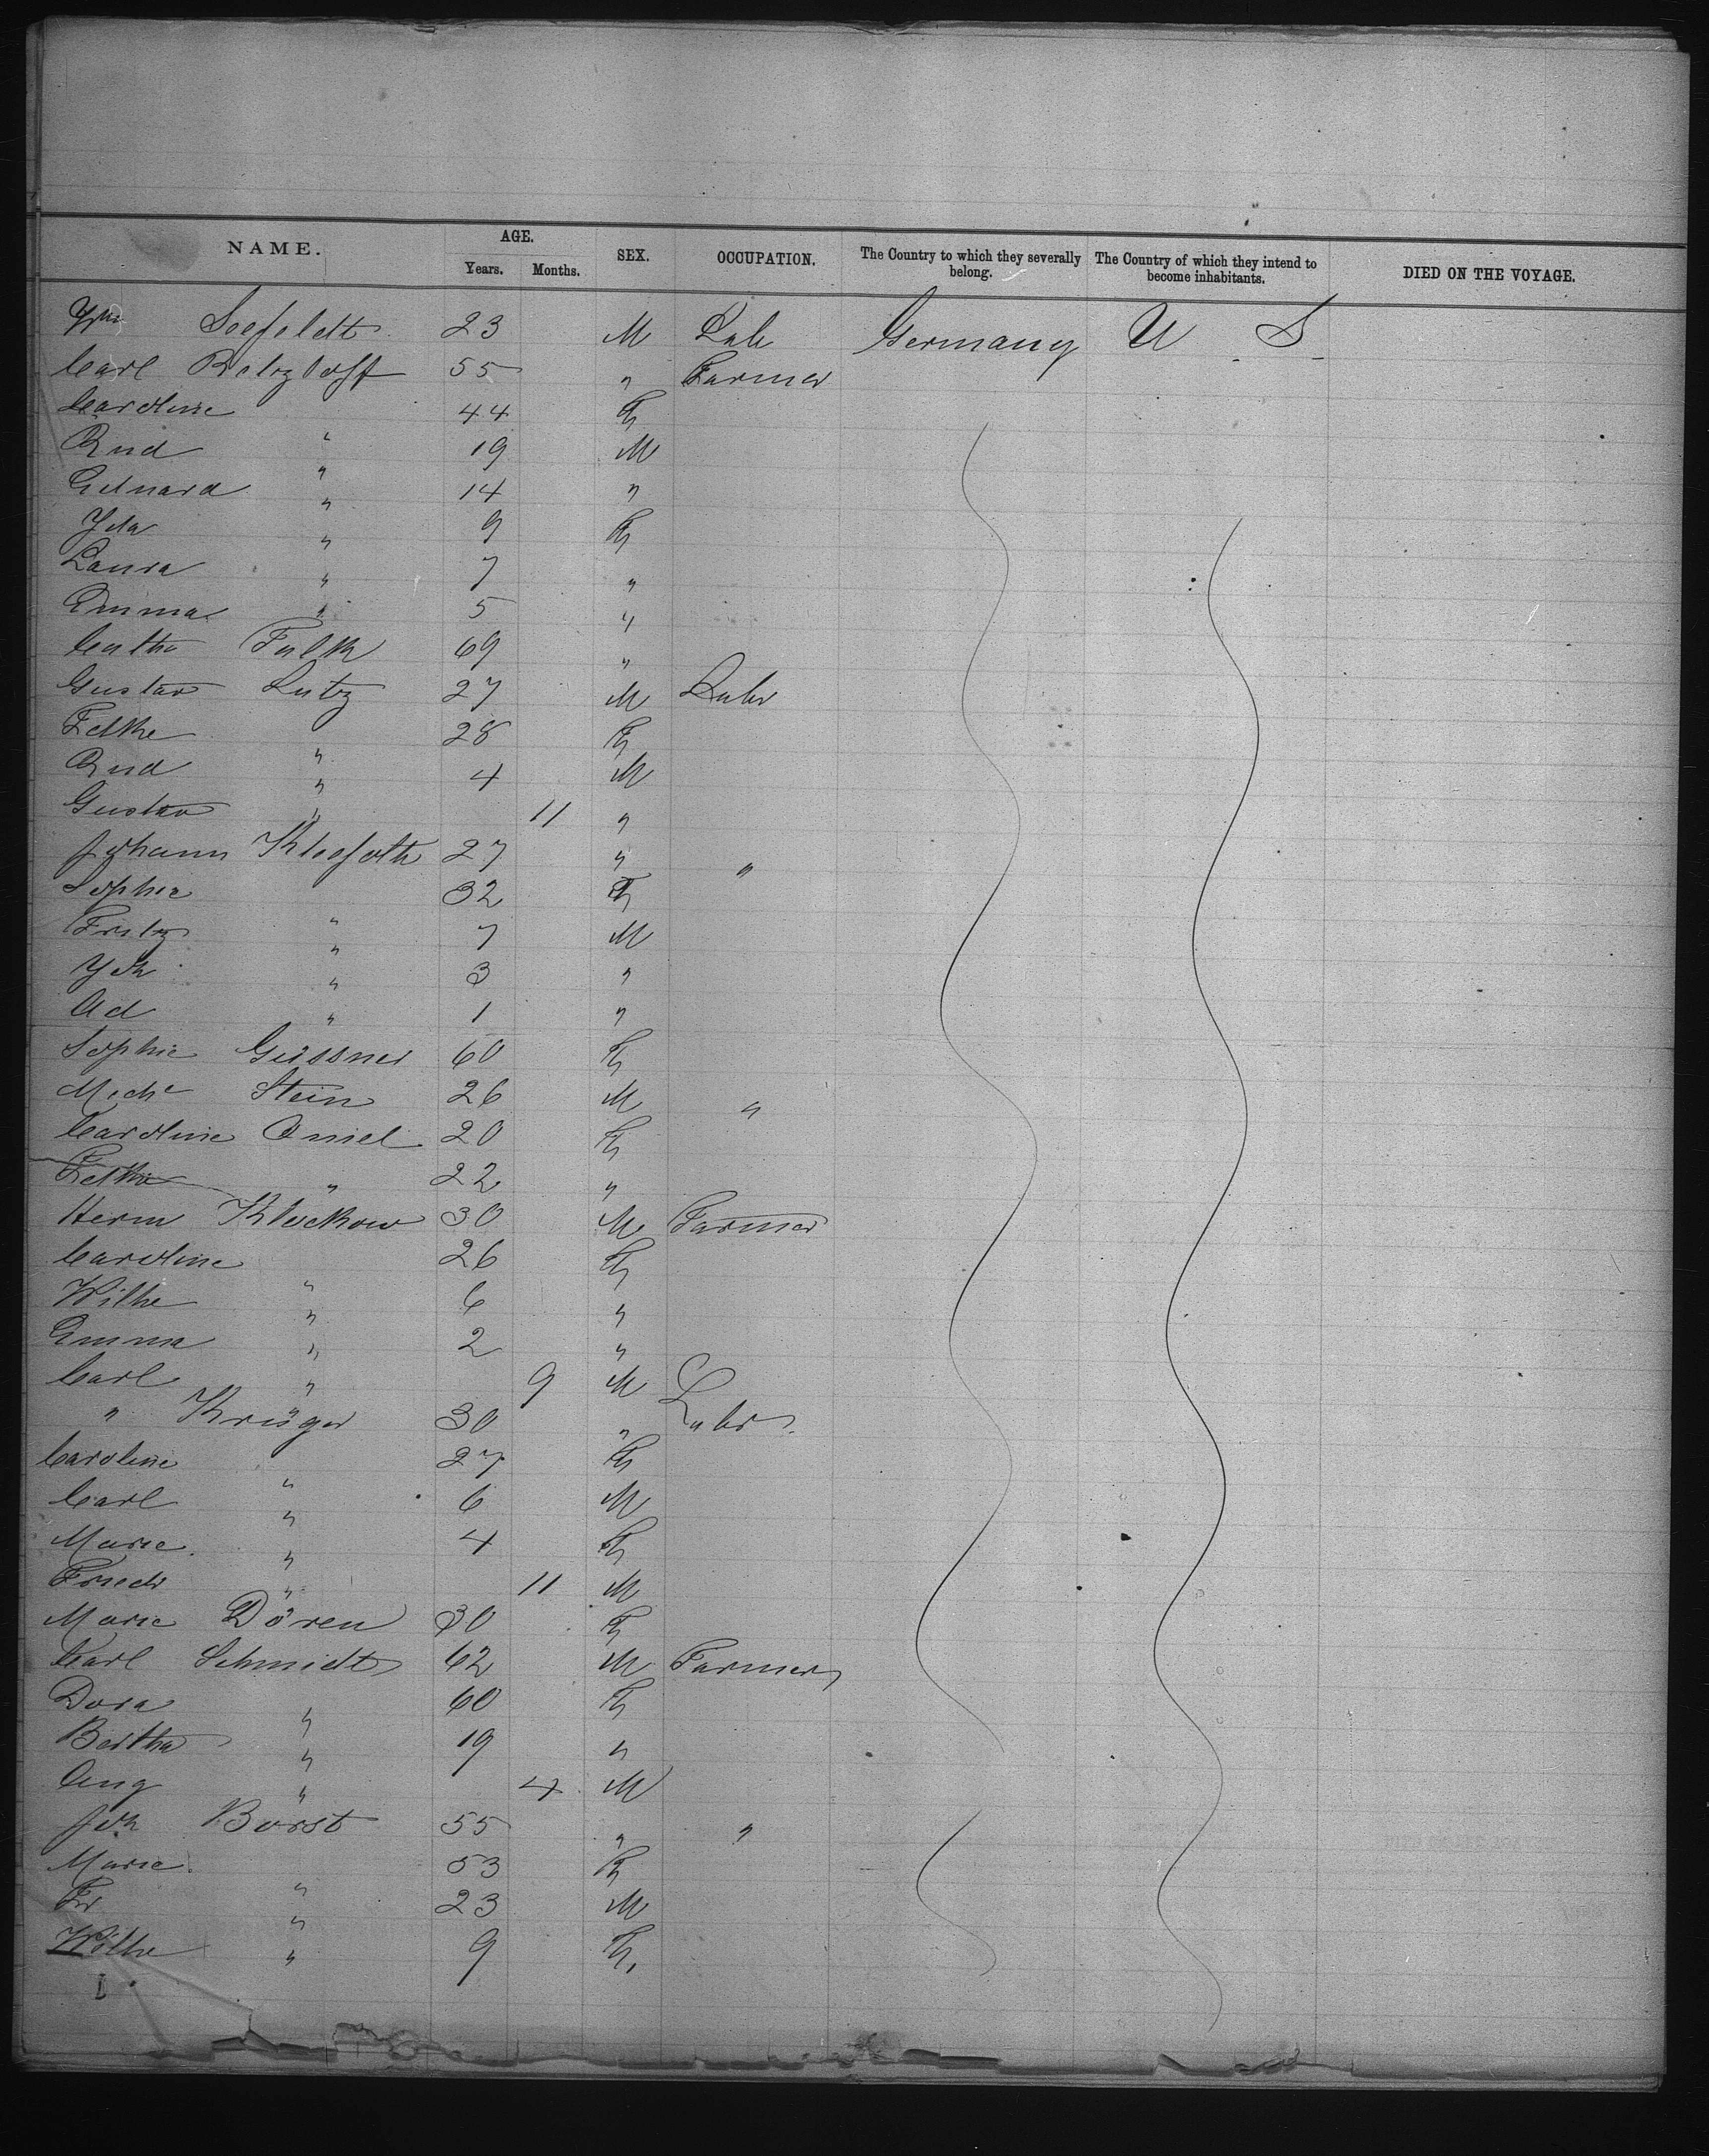 NAME. AGE. SEX. OCCUPATION. The Country to which they severally belong. The Country of which they intend to become inhabitants. DIED ON THE VOYAGE.
Years. Months.
Soefeldt 23 M Lab Germany U. S.
Carl Retzlaff 55 " Farmer
Caroline " 44 F
Rud " 19 M
Eduard " 14 "
Ida " 9 F
Laura " 7 "
Emma " 5 "
Falk 69 "
Gustav Lutz 27 M Labr
28 F
Rud " 4 M
Gustav " 11 "
Johann Kleefoth 27 " "
Sophie 32 F
Fritz " 7 M
Joh " 3 "
Ad " 1 "
Sophie Geissner 60 F
Michl Stein 26 M "
Caroline 20 F
" 22 "
Herm Klockow 30 M Farmer
Caroline " 26 F
Wilhe " 6 "
Emma " 2 "
Carl " 9 M
" Krüger 30 " Labr
Caroline " 27 F
Carl " 6 M
Marie " 4 F
Friedr " 11 M
Marie Dören 30 F
Carl Schmidt 62 M Farmer
Dora " 60 F
Bertha " 19 "
Aug " 4 M
Joh Borst 55 " "
Marie " 53 F
Fr " 23 M
Wilhe " 9 F